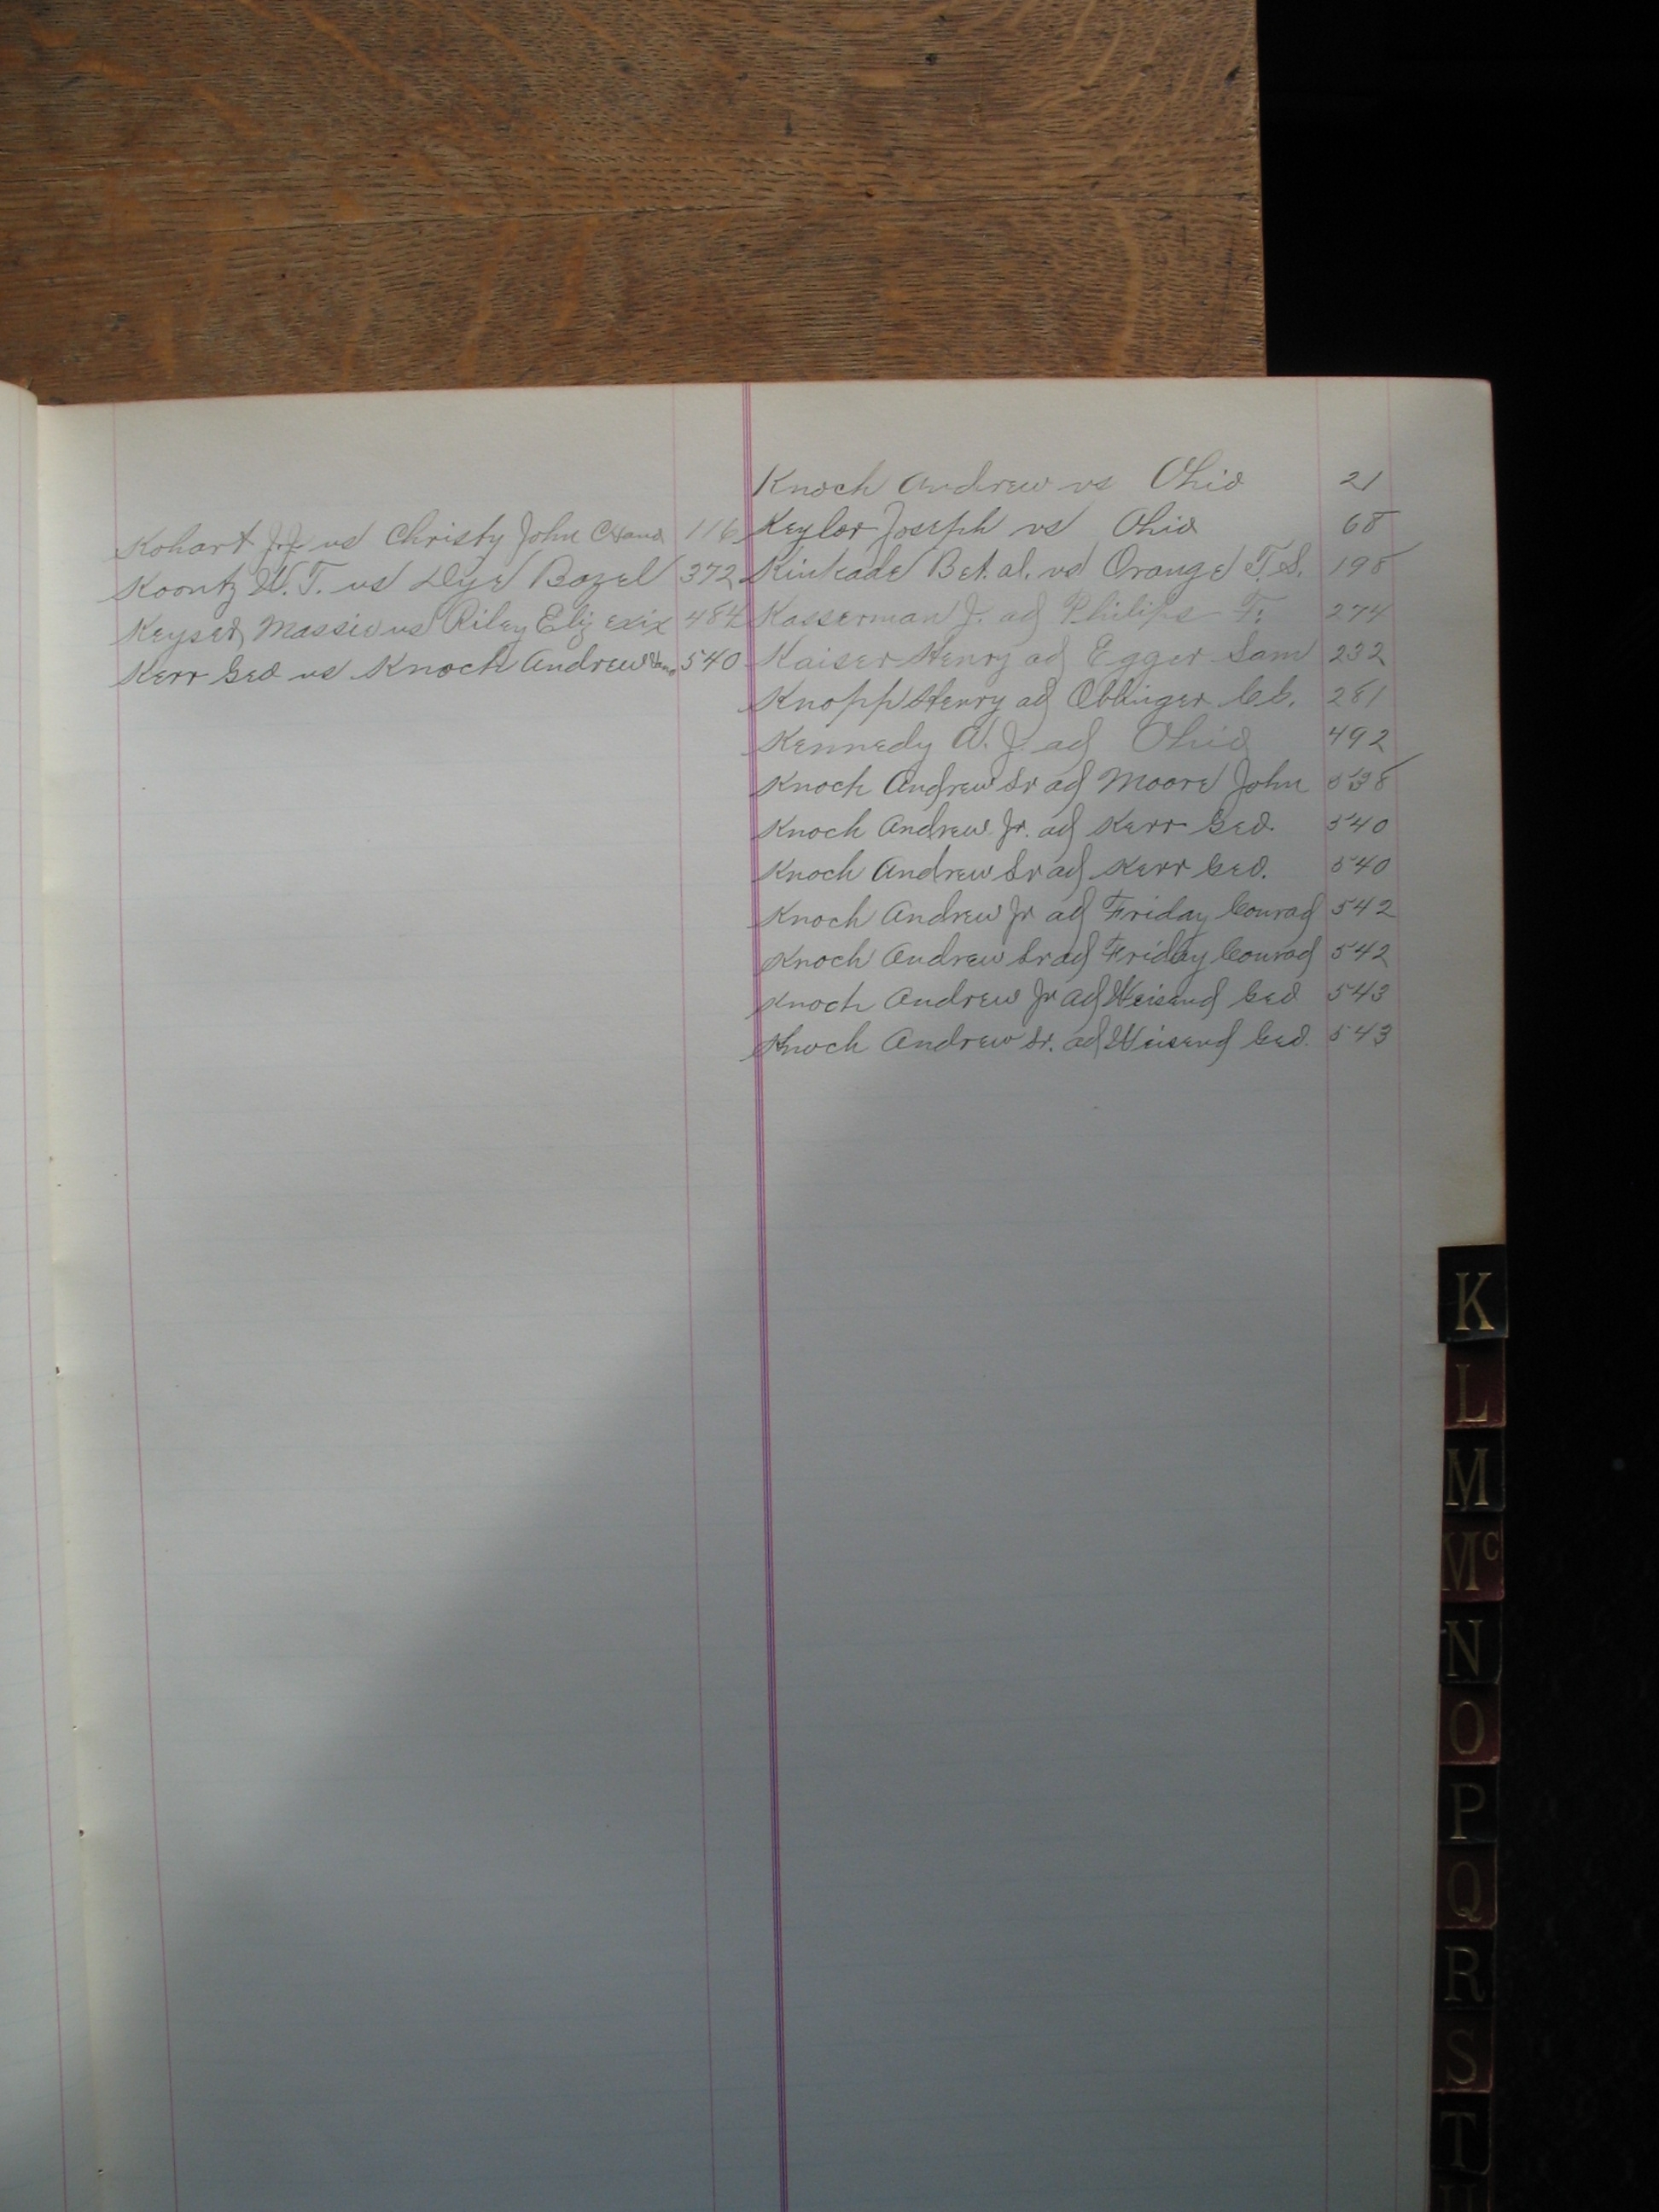 Kohart J.J. vs Christy John C 116
Koontz W. T. vs Dye Bazel 372
Keyser Massie vs Riley Eliz exix 484
Kerr Geo vs Knoch Andrew 540
Knoch Andrew vs Ohio 21
Keylor Joseph vs Ohio 68
Kinkade B et. al. vs Orange T.S. 198
Kasserman J. ad Philips F. 274
Kaiser Henry ad Egger Sam 232
Knopp Henry ad 281
Kennedy A. J. ad Ohio 492
Knoch Andrew Sr ad Moore John 538
Knoch Andrew Jr. ad Kerr Geo. 540
Knoch Andrew Sr ad Kerr Geo. 540
Knoch Andrew Jr ad Friday Conrad 542
Knoch Andrew Sr ad Friday Conrad 542
Knoch Andrew Jr ad Weisend Geo 543
Knoch Andrew Sr. ad Weisend Geo. 543
K
L
M
Mc
N
O
P
Q
R
S
T